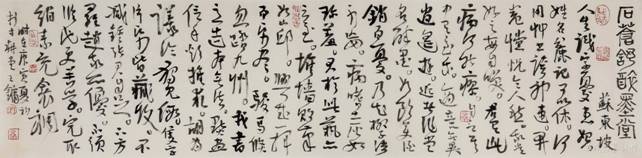 石蒼舒醉墨堂
蘇東坡
人生識字憂患始
姓名粗記可以休何
用草書誇神速開
卷惝怳令人愁我嘗
好之每自笑君有此
病何能瘳自言其中
有至樂適意不異
逍遙遊近者作堂
名醉墨如飲美酒
銷百憂乃知柳子語
不妄病嗜土炭如
珍羞君於此藝亦
云至堆牆敗筆
如山邱興來一揮
百紙盡駿馬倏
忽踏九州我書
意造本無法點畫
信手煩推求胡為
議論獨見假隻字
片紙皆藏收不
減鍾張君自足下方
羅趙我亦優不須
臨池更苦學完取
絹素充衾裯
時在庚寅夏月